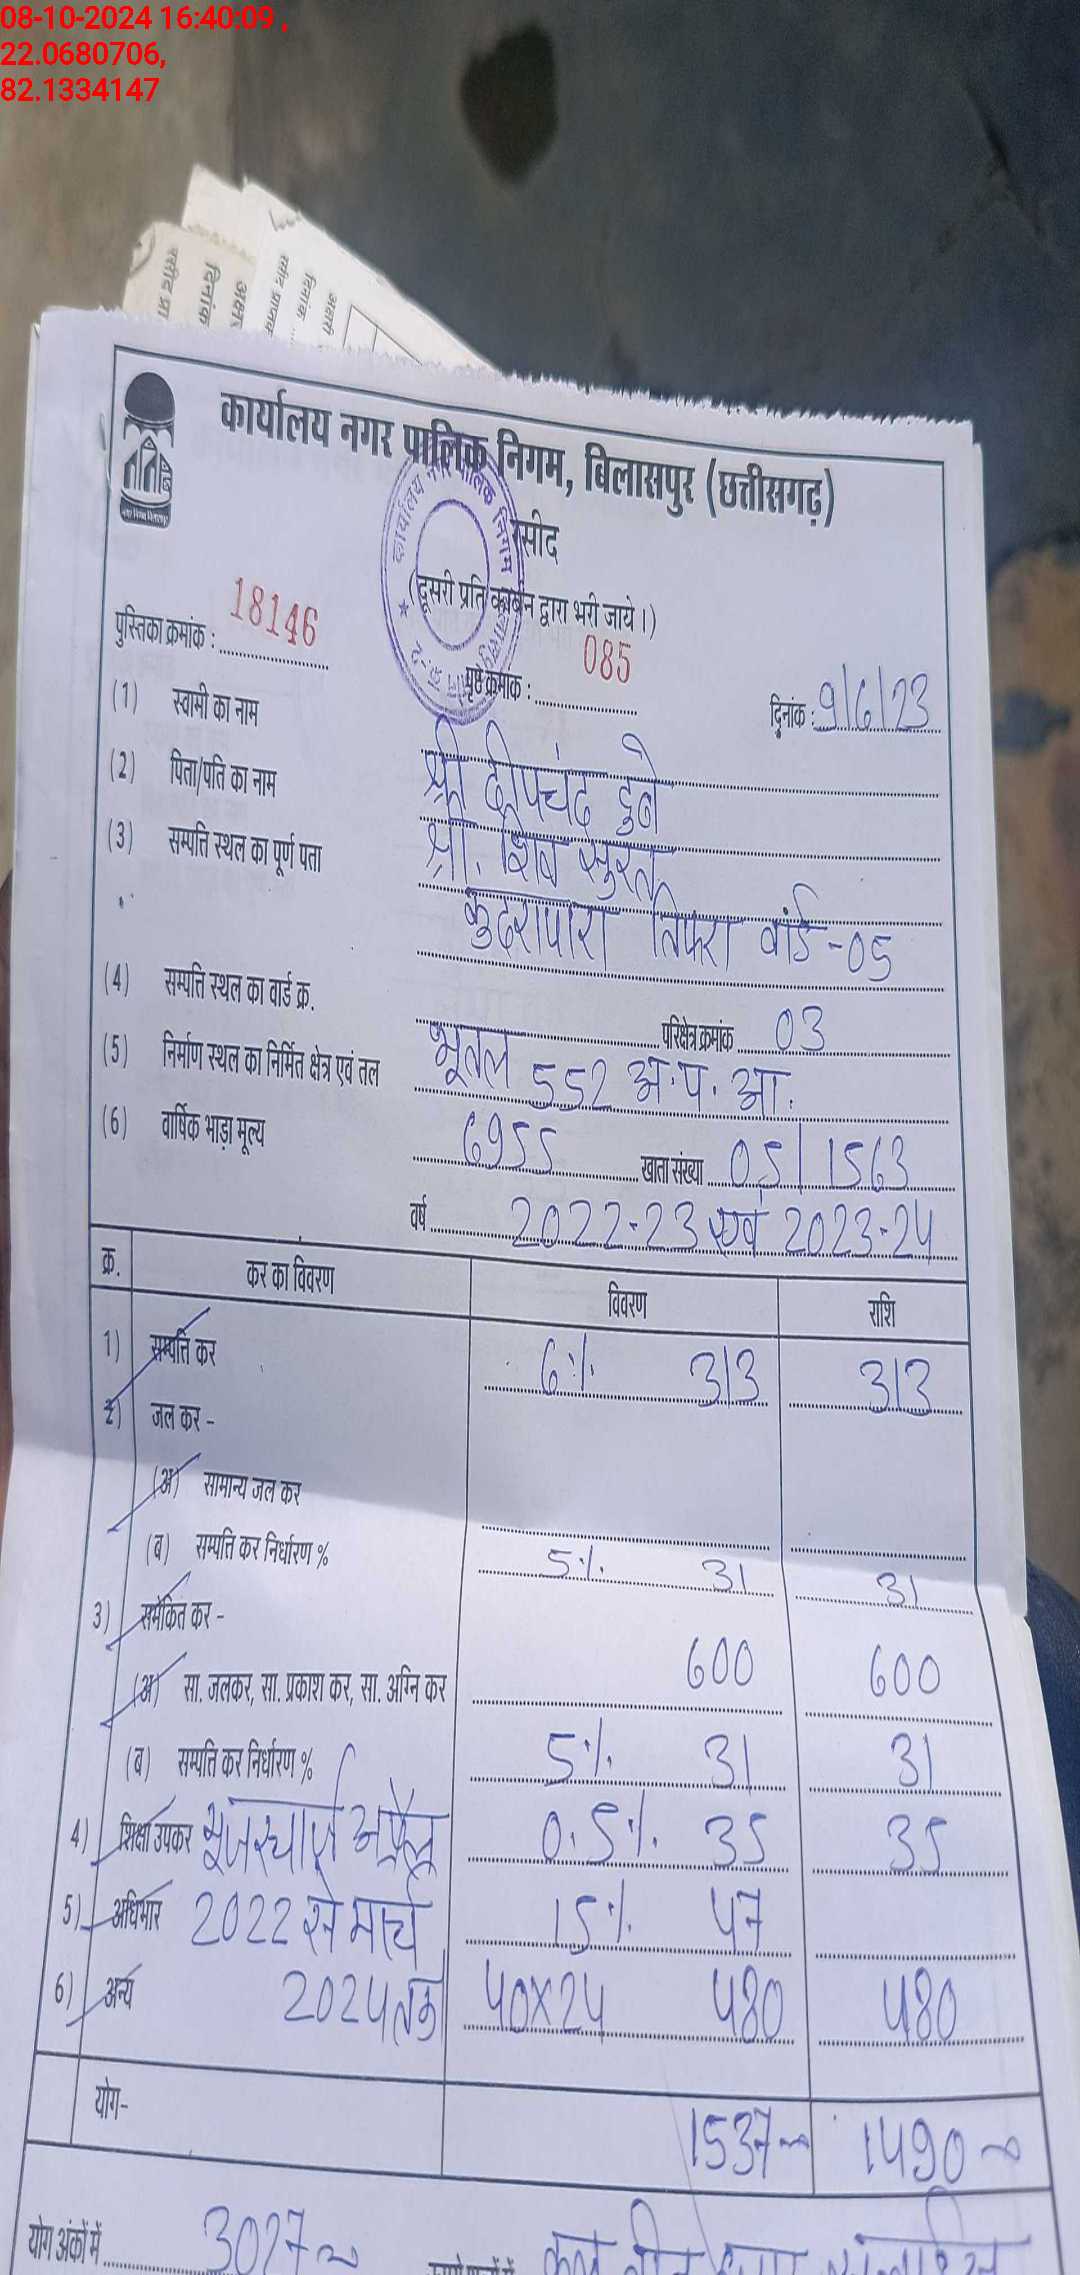 08-10-2024 16:40:09 ,
22.0680706,
82.1334147
कार्यालय नगर पालिक निगम, बिलासपुर (छत्तीसगढ़)
रसीद
(दूसरी प्रति कार्बन द्वारा भरी जाये।)
पुस्तिका क्रमांक : 18146
पृष्ठ क्रमांक : 085
दिनांक : 9/6/23
(1) स्वामी का नाम श्री दीपचंद दुबे
(2) पिता/पति का नाम श्री. शिव सुरत
(3) सम्पत्ति स्थल का पूर्ण पता कुदरापारा तिफरा वार्ड-05
(4) सम्पत्ति स्थल का वार्ड क्र. परिक्षेत्र क्रमांक 03
(5) निर्माण स्थल का निर्मित क्षेत्र एवं तल भूतल 552 अ.प. आ.
(6) वार्षिक भाड़ा मूल्य 6955 खाता संख्या 05/1563
वर्ष 2022-23 एवं 2023-24
क्र. कर का विवरण विवरण राशि
1) सम्पत्ति कर 6% 313 313
2) जल कर -
(अ) सामान्य जल कर
(ब) सम्पत्ति कर निर्धारण % 5% 31 31
3) समेकित कर -
(अ) सा. जलकर, सा. प्रकाश कर, सा. अग्नि कर 600 600
(ब) सम्पत्ति कर निर्धारण % 5% 31 31
4) शिक्षा उपकर यूजरचार्ज अप्रैल 0.5% 35 35
5) अधिभार 2022 से मार्च 15% 47
6) अन्य 2024 तक 40x24 480 480
योग- 1537 1490
योग अंकों में 3027